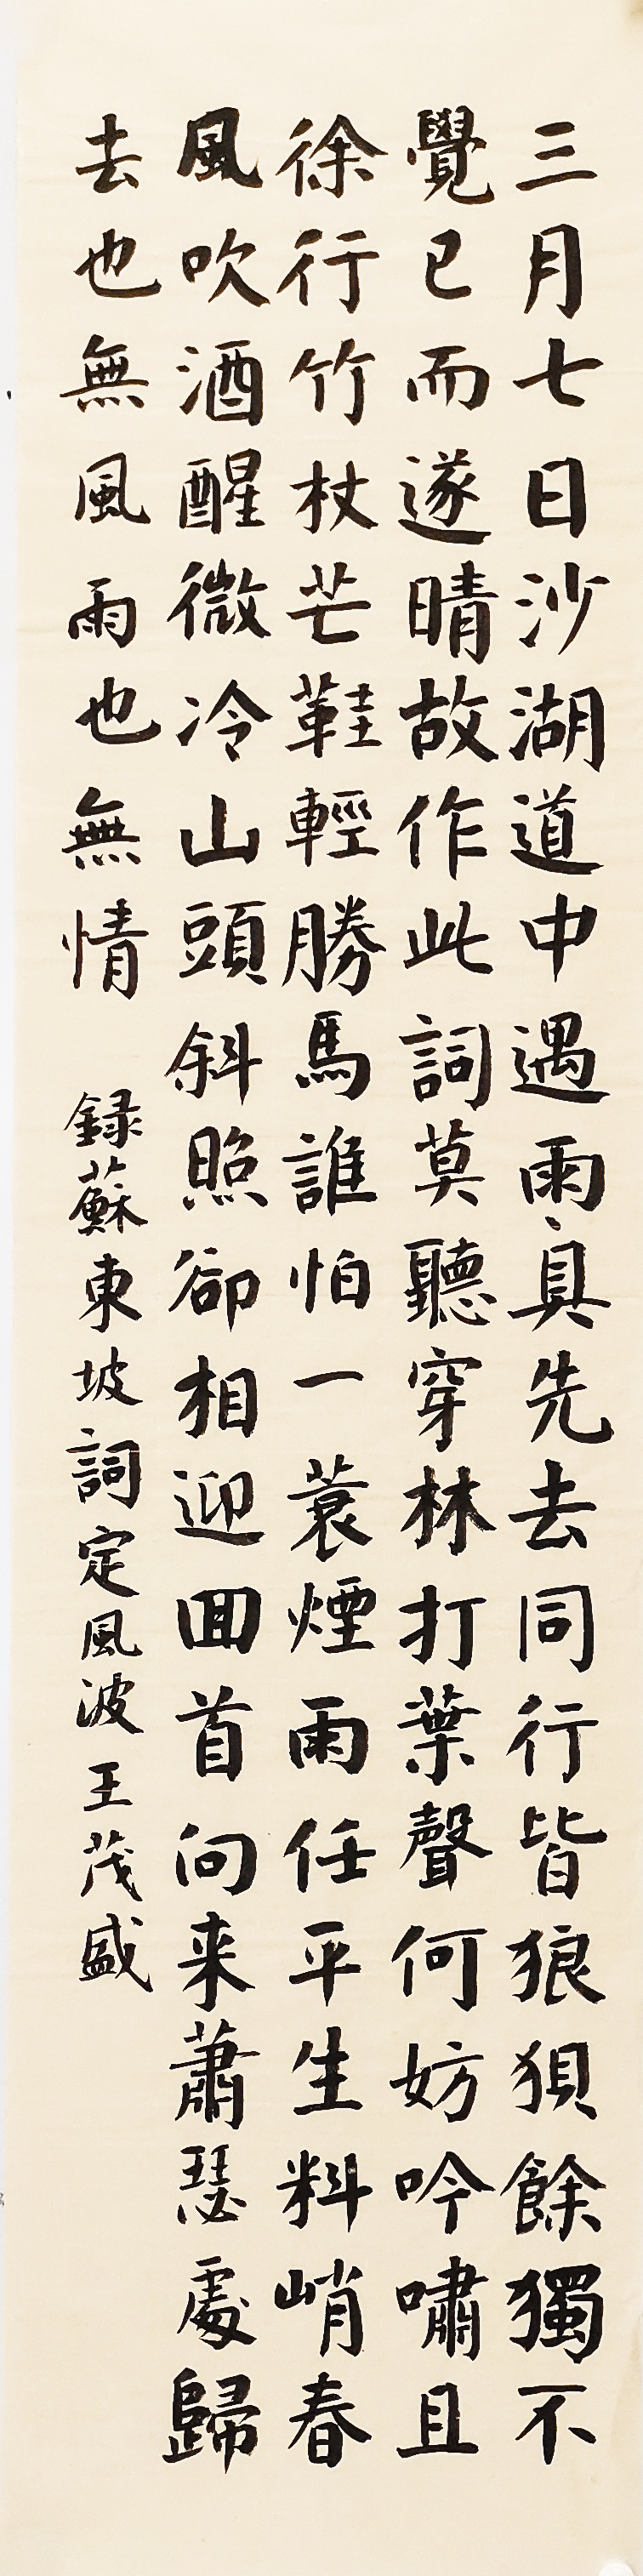 三月七日沙湖道中遇雨、具先去同行皆狼狽餘獨不
覺已而遂晴故作此詞莫聽穿林打葉聲何妨吟嘯且
徐行竹杖芒鞋輕勝馬誰怕一蓑煙雨任平生料峭春
風吹酒醒微冷山頭斜照卻相迎囬首向来蕭瑟處歸
去也無風雨也無情 録蘇東坡詞定風波王茂盛